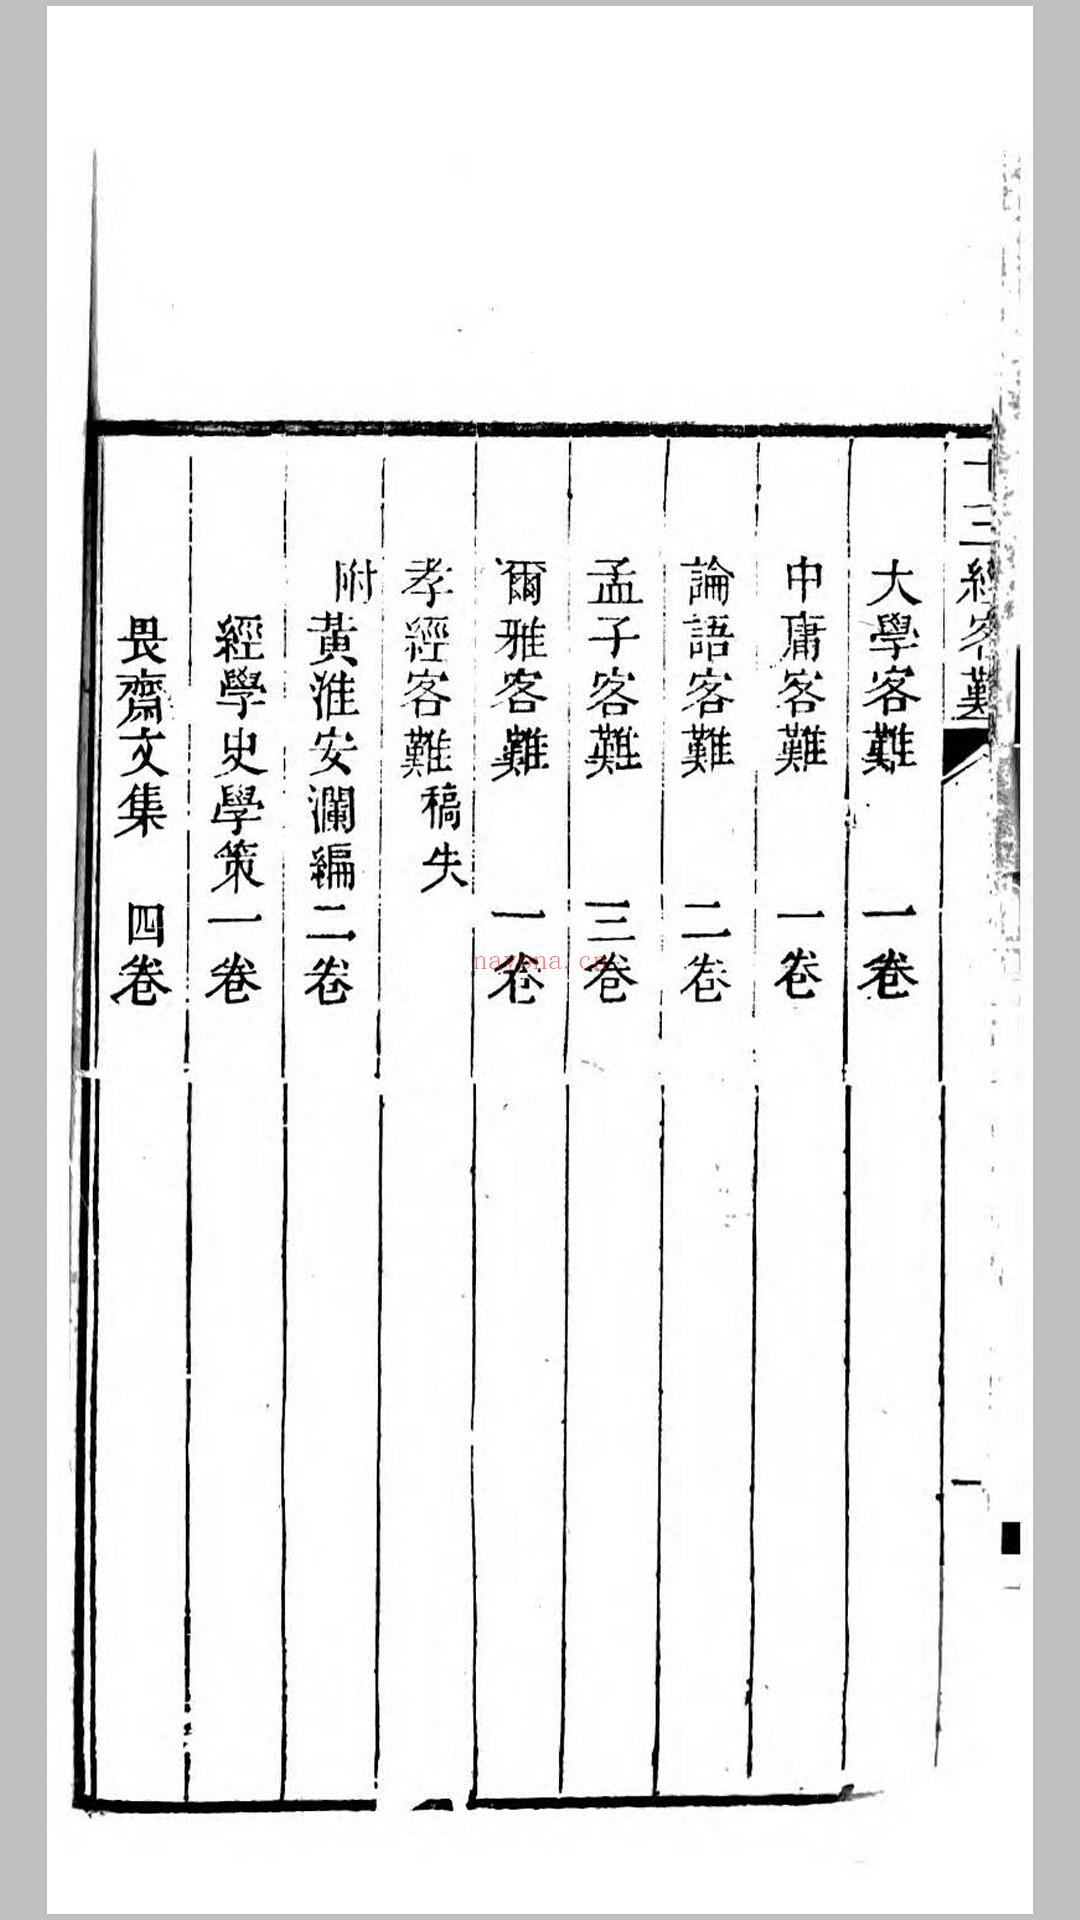 十三經客難
一
大學客難　一卷
中庸客難　一卷
論語客難　二卷
孟子客難　三卷
爾雅客難　一卷
孝經客難稿失
附黃淮安瀾編二卷
經學史學策一卷
畏齋文集　四卷
nayona.cn